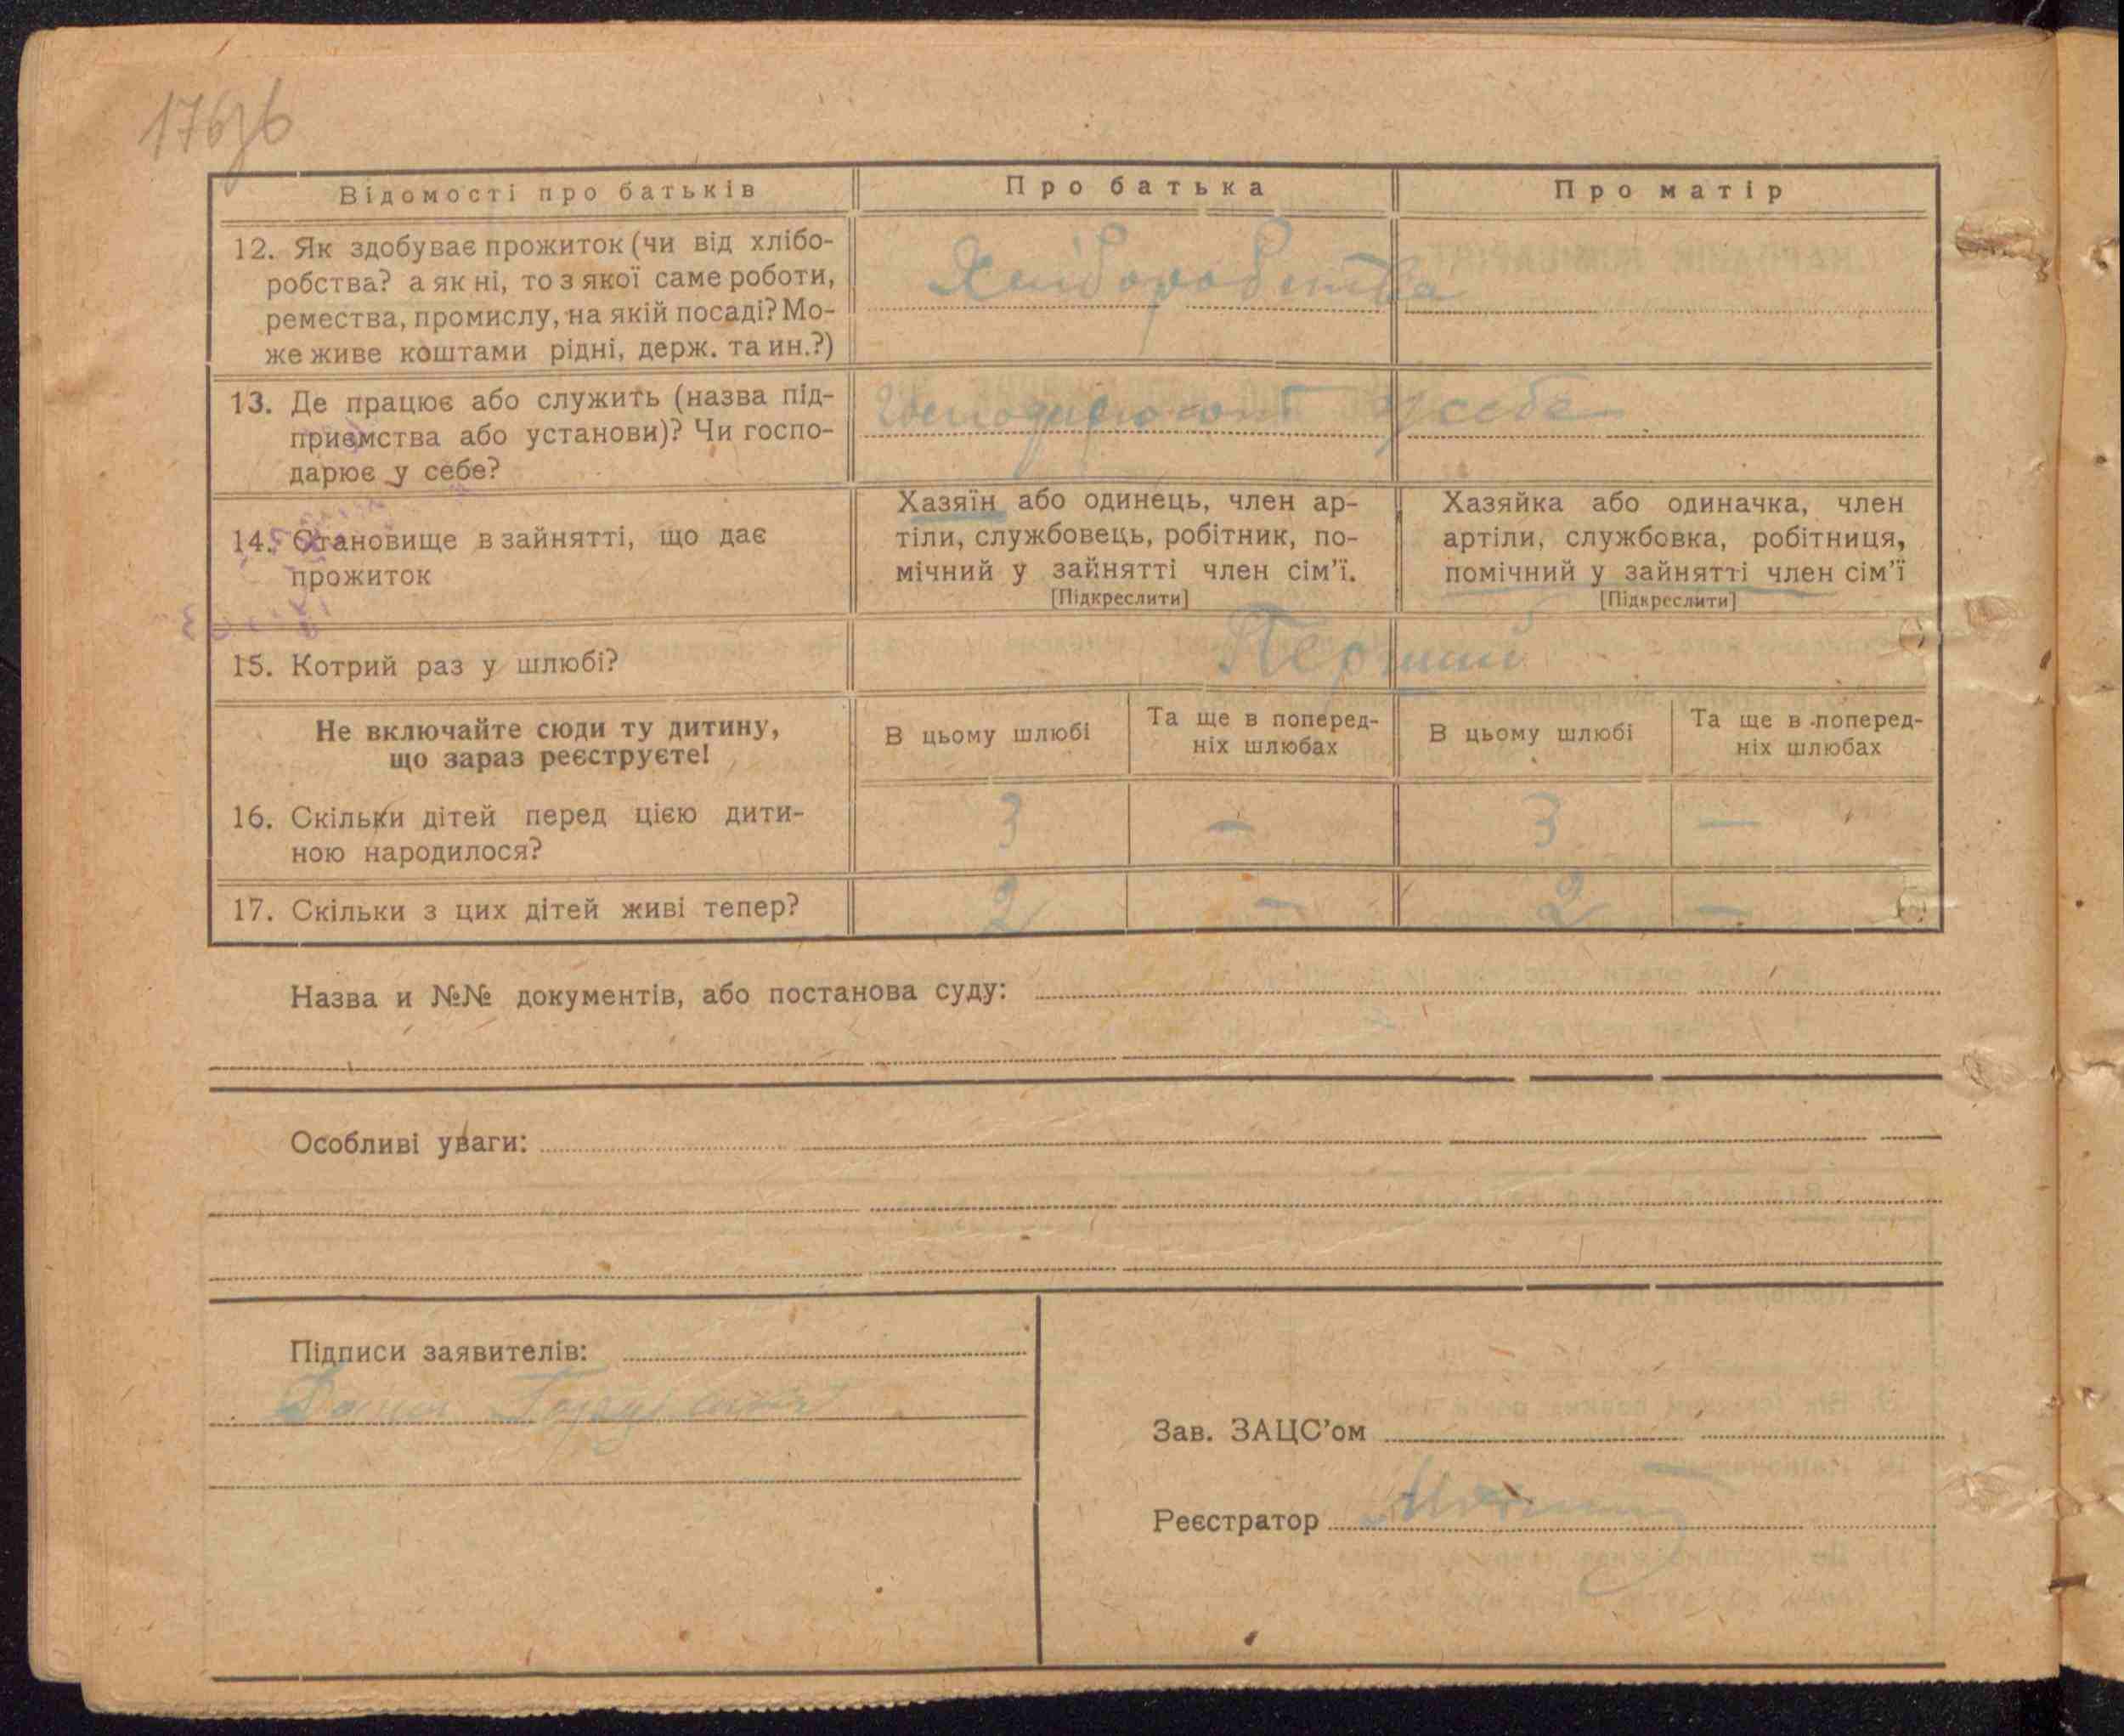 176зв
Відомості про батьків
Про батька
Про матір
12. Як здобуває прожиток (чи від хлібо-
робства? а як ні, то з якої саме роботи,
ремества, промислу, на якій посаді? Мо-
же живе коштами рідні, держ. та ин.?)
Хліборобства
13. Де працює або служить (назва під-
приємства або установи)? Чи госпо-
дарює у себе?
Господарюють у себе
14. Становище в зайнятті, що дає
прожиток
Хазяїн або одинець, член ар-
тіли, службовець, робітник, по-
мічний у зайнятті член сім'ї.
[Підкреслити]
Хазяйка або одиначка, член
артіли, службовка, робітниця,
помічний у зайнятті член сім'ї
[Підкреслити]
15. Котрий раз у шлюбі?
Перший
Не включайте сюди ту дитину,
що зараз реєструєте!
В цьому шлюбі
Та ще в поперед-
ніх шлюбах
В цьому шлюбі
Та ще в поперед-
ніх шлюбах
16. Скільки дітей перед цією дити-
ною народилося?
3 — 3 —
17. Скільки з цих дітей живі тепер?
2 — 2 —
Назва и №№ документів, або постанова суду:
Особливі уваги:
Підписи заявителів:
Зав. ЗАЦС'ом
Реєстратор